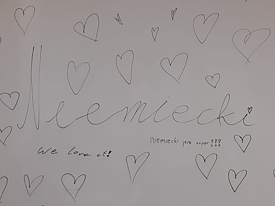 Niemiecki
Niemiecki jest super!!!
We love it!